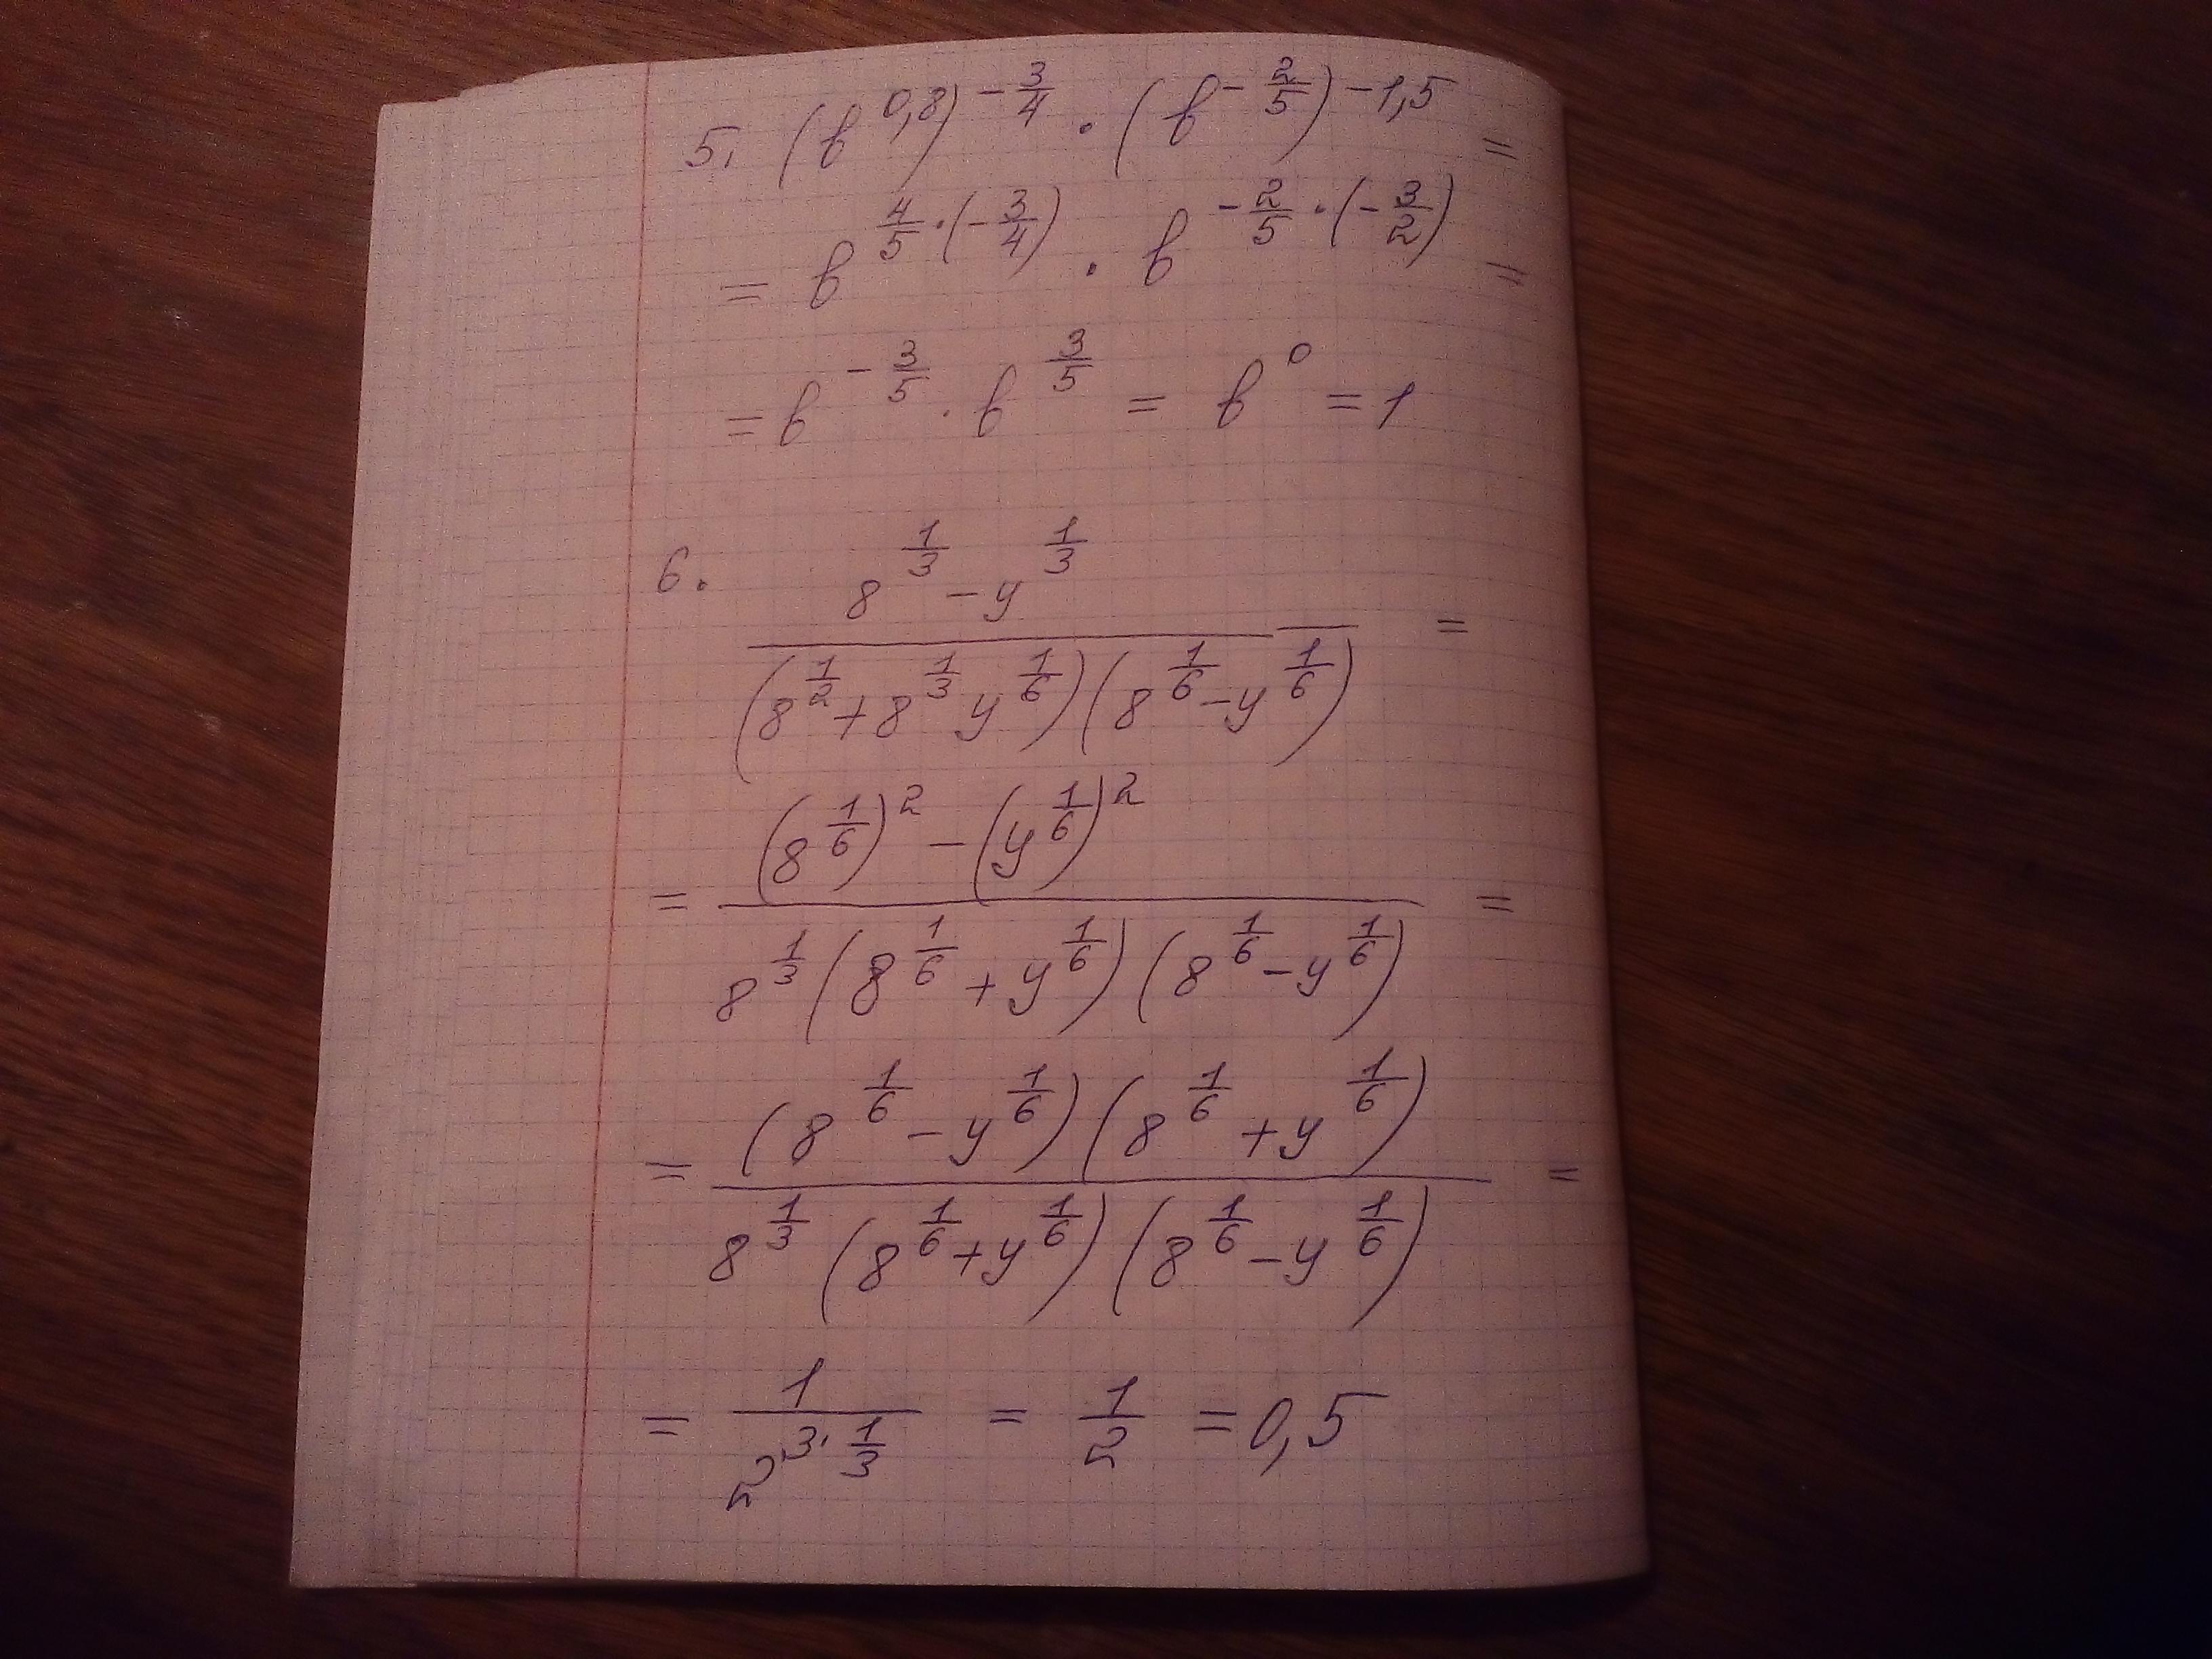 5. (b^{0,8})^{-\frac{3}{4}} \cdot (b^{-\frac{2}{5}})^{-1,5} =
= b^{\frac{4}{5} \cdot (-\frac{3}{4})} \cdot b^{-\frac{2}{5} \cdot (-\frac{3}{2})} =
= b^{-\frac{3}{5}} \cdot b^{\frac{3}{5}} = b^0 = 1
6. \frac{8^{\frac{1}{3}} - y^{\frac{1}{3}}}{(8^{\frac{1}{2}} + 8^{\frac{1}{3}} y^{\frac{1}{6}})(8^{\frac{1}{6}} - y^{\frac{1}{6}})} =
= \frac{(8^{\frac{1}{6}})^2 - (y^{\frac{1}{6}})^2}{8^{\frac{1}{3}}(8^{\frac{1}{6}} + y^{\frac{1}{6}})(8^{\frac{1}{6}} - y^{\frac{1}{6}})} =
= \frac{(8^{\frac{1}{6}} - y^{\frac{1}{6}})(8^{\frac{1}{6}} + y^{\frac{1}{6}})}{8^{\frac{1}{3}}(8^{\frac{1}{6}} + y^{\frac{1}{6}})(8^{\frac{1}{6}} - y^{\frac{1}{6}})} =
= \frac{1}{2^{3 \cdot \frac{1}{3}}} = \frac{1}{2} = 0,5